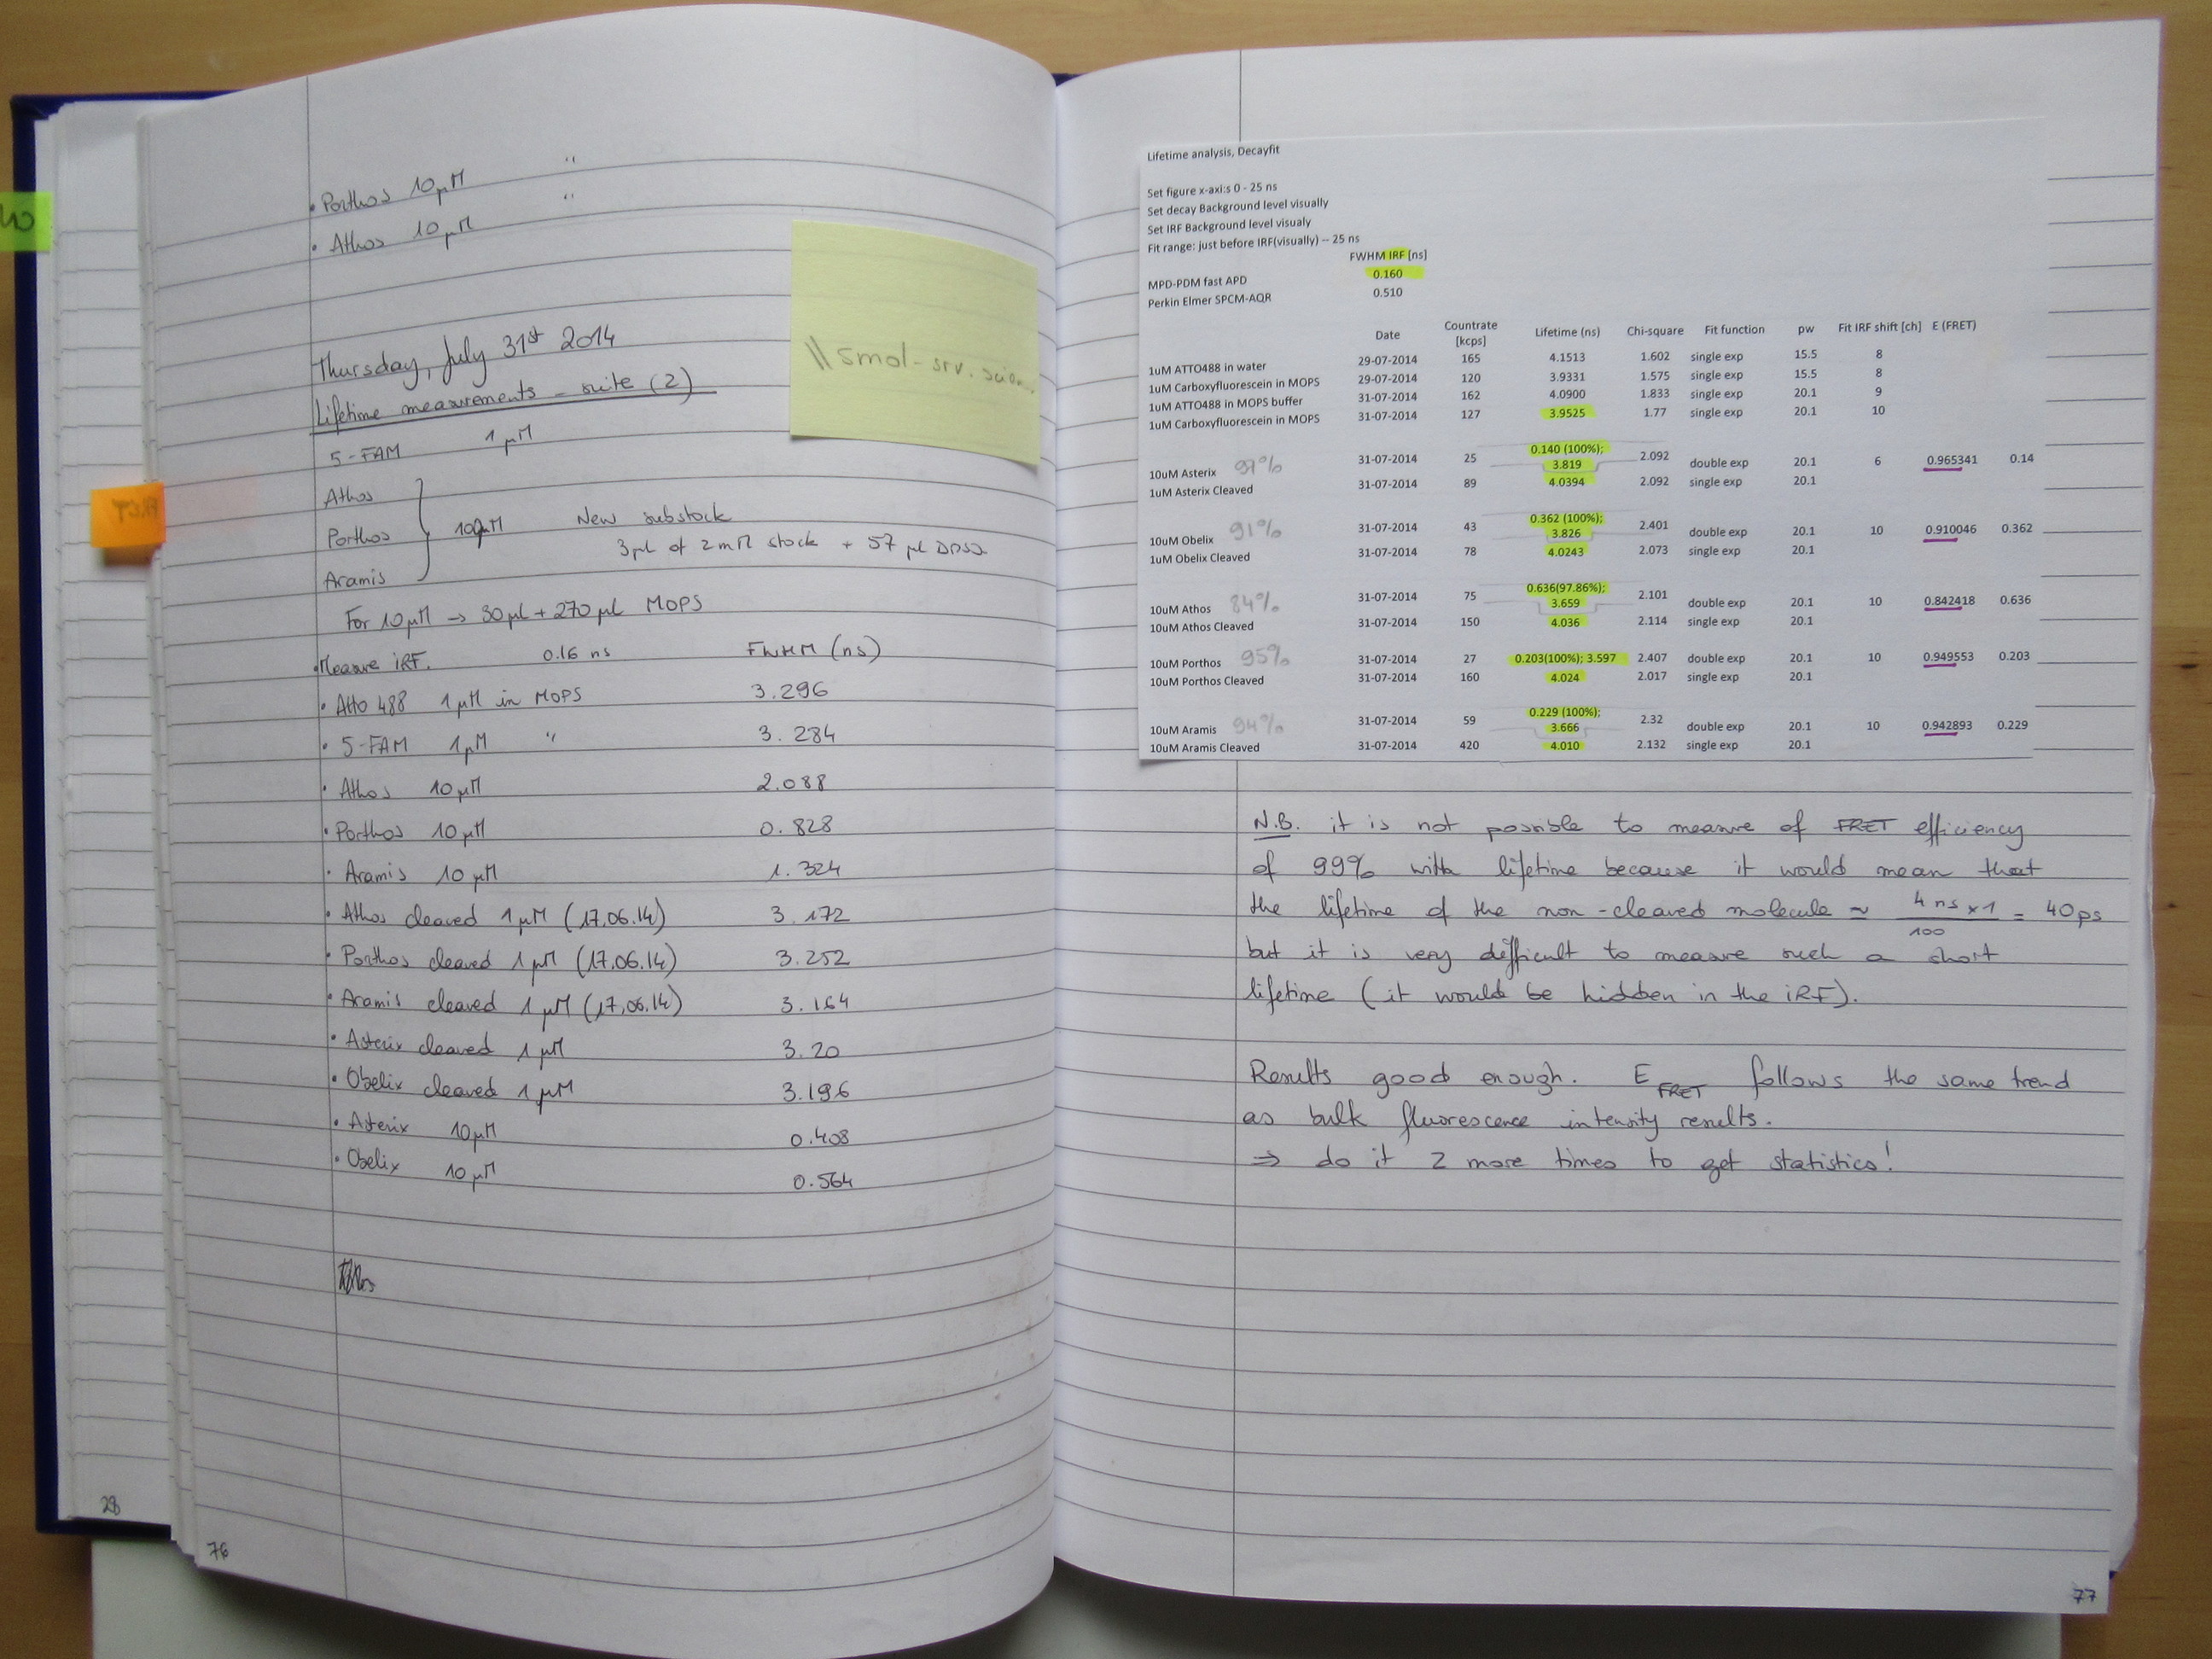 • Porthos 10 µM "
• Athos 10 µM "
Thursday, July 31st 2014
Lifetime measurements - suite (2)
5-FAM 1 µM
Athos
Porthos 10µM New substock
3µl of 2mM stock + 57 µl DMSO
Aramis
For 10µM → 30µl + 270µl MOPS
• Measure iRF. 0.16 ns FWHM (ns)
• Atto 488 1µM in MOPS 3.296
• 5-FAM 1µM " 3.284
• Athos 10µM 2.088
• Porthos 10µM 0.828
• Aramis 10µM 1.324
• Athos cleaved 1µM (17.06.14) 3.172
• Porthos cleaved 1µM (17.06.14) 3.252
• Aramis cleaved 1µM (17.06.14) 3.164
• Asterix cleaved 1µM 3.20
• Obelix cleaved 1µM 3.196
• Asterix 10µM 0.408
• Obelix 10µM 0.564
28
76
\\smol-srv.scien..
FRET
Lifetime analysis, Decayfit
Set figure x-axi:s 0 - 25 ns
Set decay Background level visually
Set IRF Background level visualy
Fit range: just before IRF(visually) -- 25 ns
FWHM IRF [ns]
MPD-PDM fast APD 0.160
Perkin Elmer SPCM-AQR 0.510
Date Countrate [kcps] Lifetime (ns) Chi-square Fit function pw Fit IRF shift [ch] E (FRET)
1uM ATTO488 in water 29-07-2014 165 4.1513 1.602 single exp 15.5 8
1uM Carboxyfluorescein in MOPS 29-07-2014 120 3.9331 1.575 single exp 15.5 8
1uM ATTO488 in MOPS buffer 31-07-2014 162 4.0900 1.833 single exp 20.1 9
1uM Carboxyfluorescein in MOPS 31-07-2014 127 3.9525 1.77 single exp 20.1 10
10uM Asterix 97% 31-07-2014 25 0.140 (100%); 3.819 2.092 double exp 20.1 6 0.965341 0.14
1uM Asterix Cleaved 31-07-2014 89 4.0394 2.092 single exp 20.1
10uM Obelix 91% 31-07-2014 43 0.362 (100%); 3.826 2.401 double exp 20.1 10 0.910046 0.362
1uM Obelix Cleaved 31-07-2014 78 4.0243 2.073 single exp 20.1
10uM Athos 84% 31-07-2014 75 0.636(97.86%); 3.659 2.101 double exp 20.1 10 0.842418 0.636
10uM Athos Cleaved 31-07-2014 150 4.036 2.114 single exp 20.1
10uM Porthos 95% 31-07-2014 27 0.203(100%); 3.597 2.407 double exp 20.1 10 0.949553 0.203
10uM Porthos Cleaved 31-07-2014 160 4.024 2.017 single exp 20.1
10uM Aramis 94% 31-07-2014 59 0.229 (100%); 3.666 2.32 double exp 20.1 10 0.942893 0.229
10uM Aramis Cleaved 31-07-2014 420 4.010 2.132 single exp 20.1
N.B. it is not possible to measure of FRET efficiency
of 99% with lifetime because it would mean that
the lifetime of the non-cleaved molecule ≈ 4 ns x 1 / 100 = 40ps
but it is very difficult to measure such a short
lifetime (it would be hidden in the iRF).
Results good enough. E FRET follows the same trend
as bulk fluorescence intensity results.
⇒ do it 2 more times to get statistics!
77